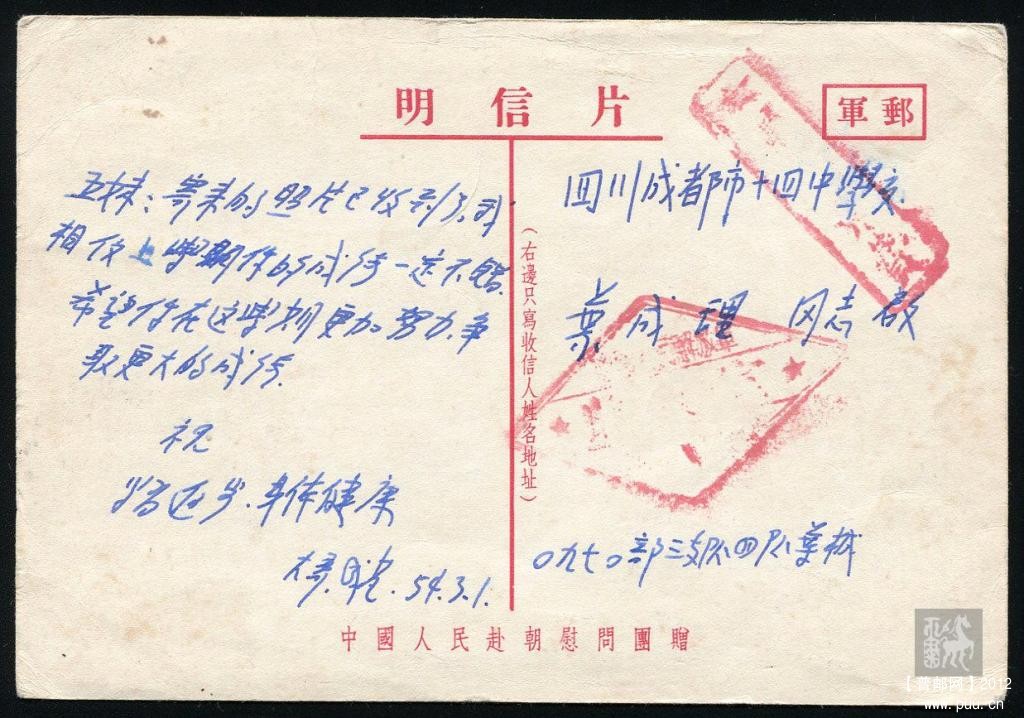 明信片
軍郵
四川成都市十四中學校
葉成理 同志啟
(右邊只寫收信人姓名地址)
〇九七〇部三支队四队葉械
五妹：寄来的照片已收到了.我
相信上学期你的成绩一定不錯.
希望你在这学期更加努力.爭
取更大的成绩.
祝
进步.身体健康
54.3.1.
中國人民赴朝慰問團贈
【普邮网】2012
www.puu.cn